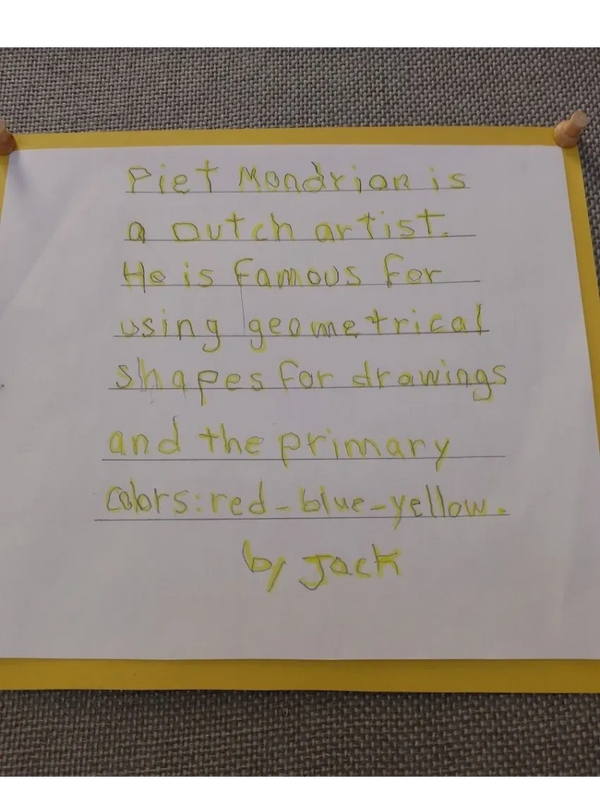 Piet Mondrian is
a Dutch artist.
He is famous for
using geometrical
shapes for drawings
and the primary
colors: red-blue-yellow.
by Jack